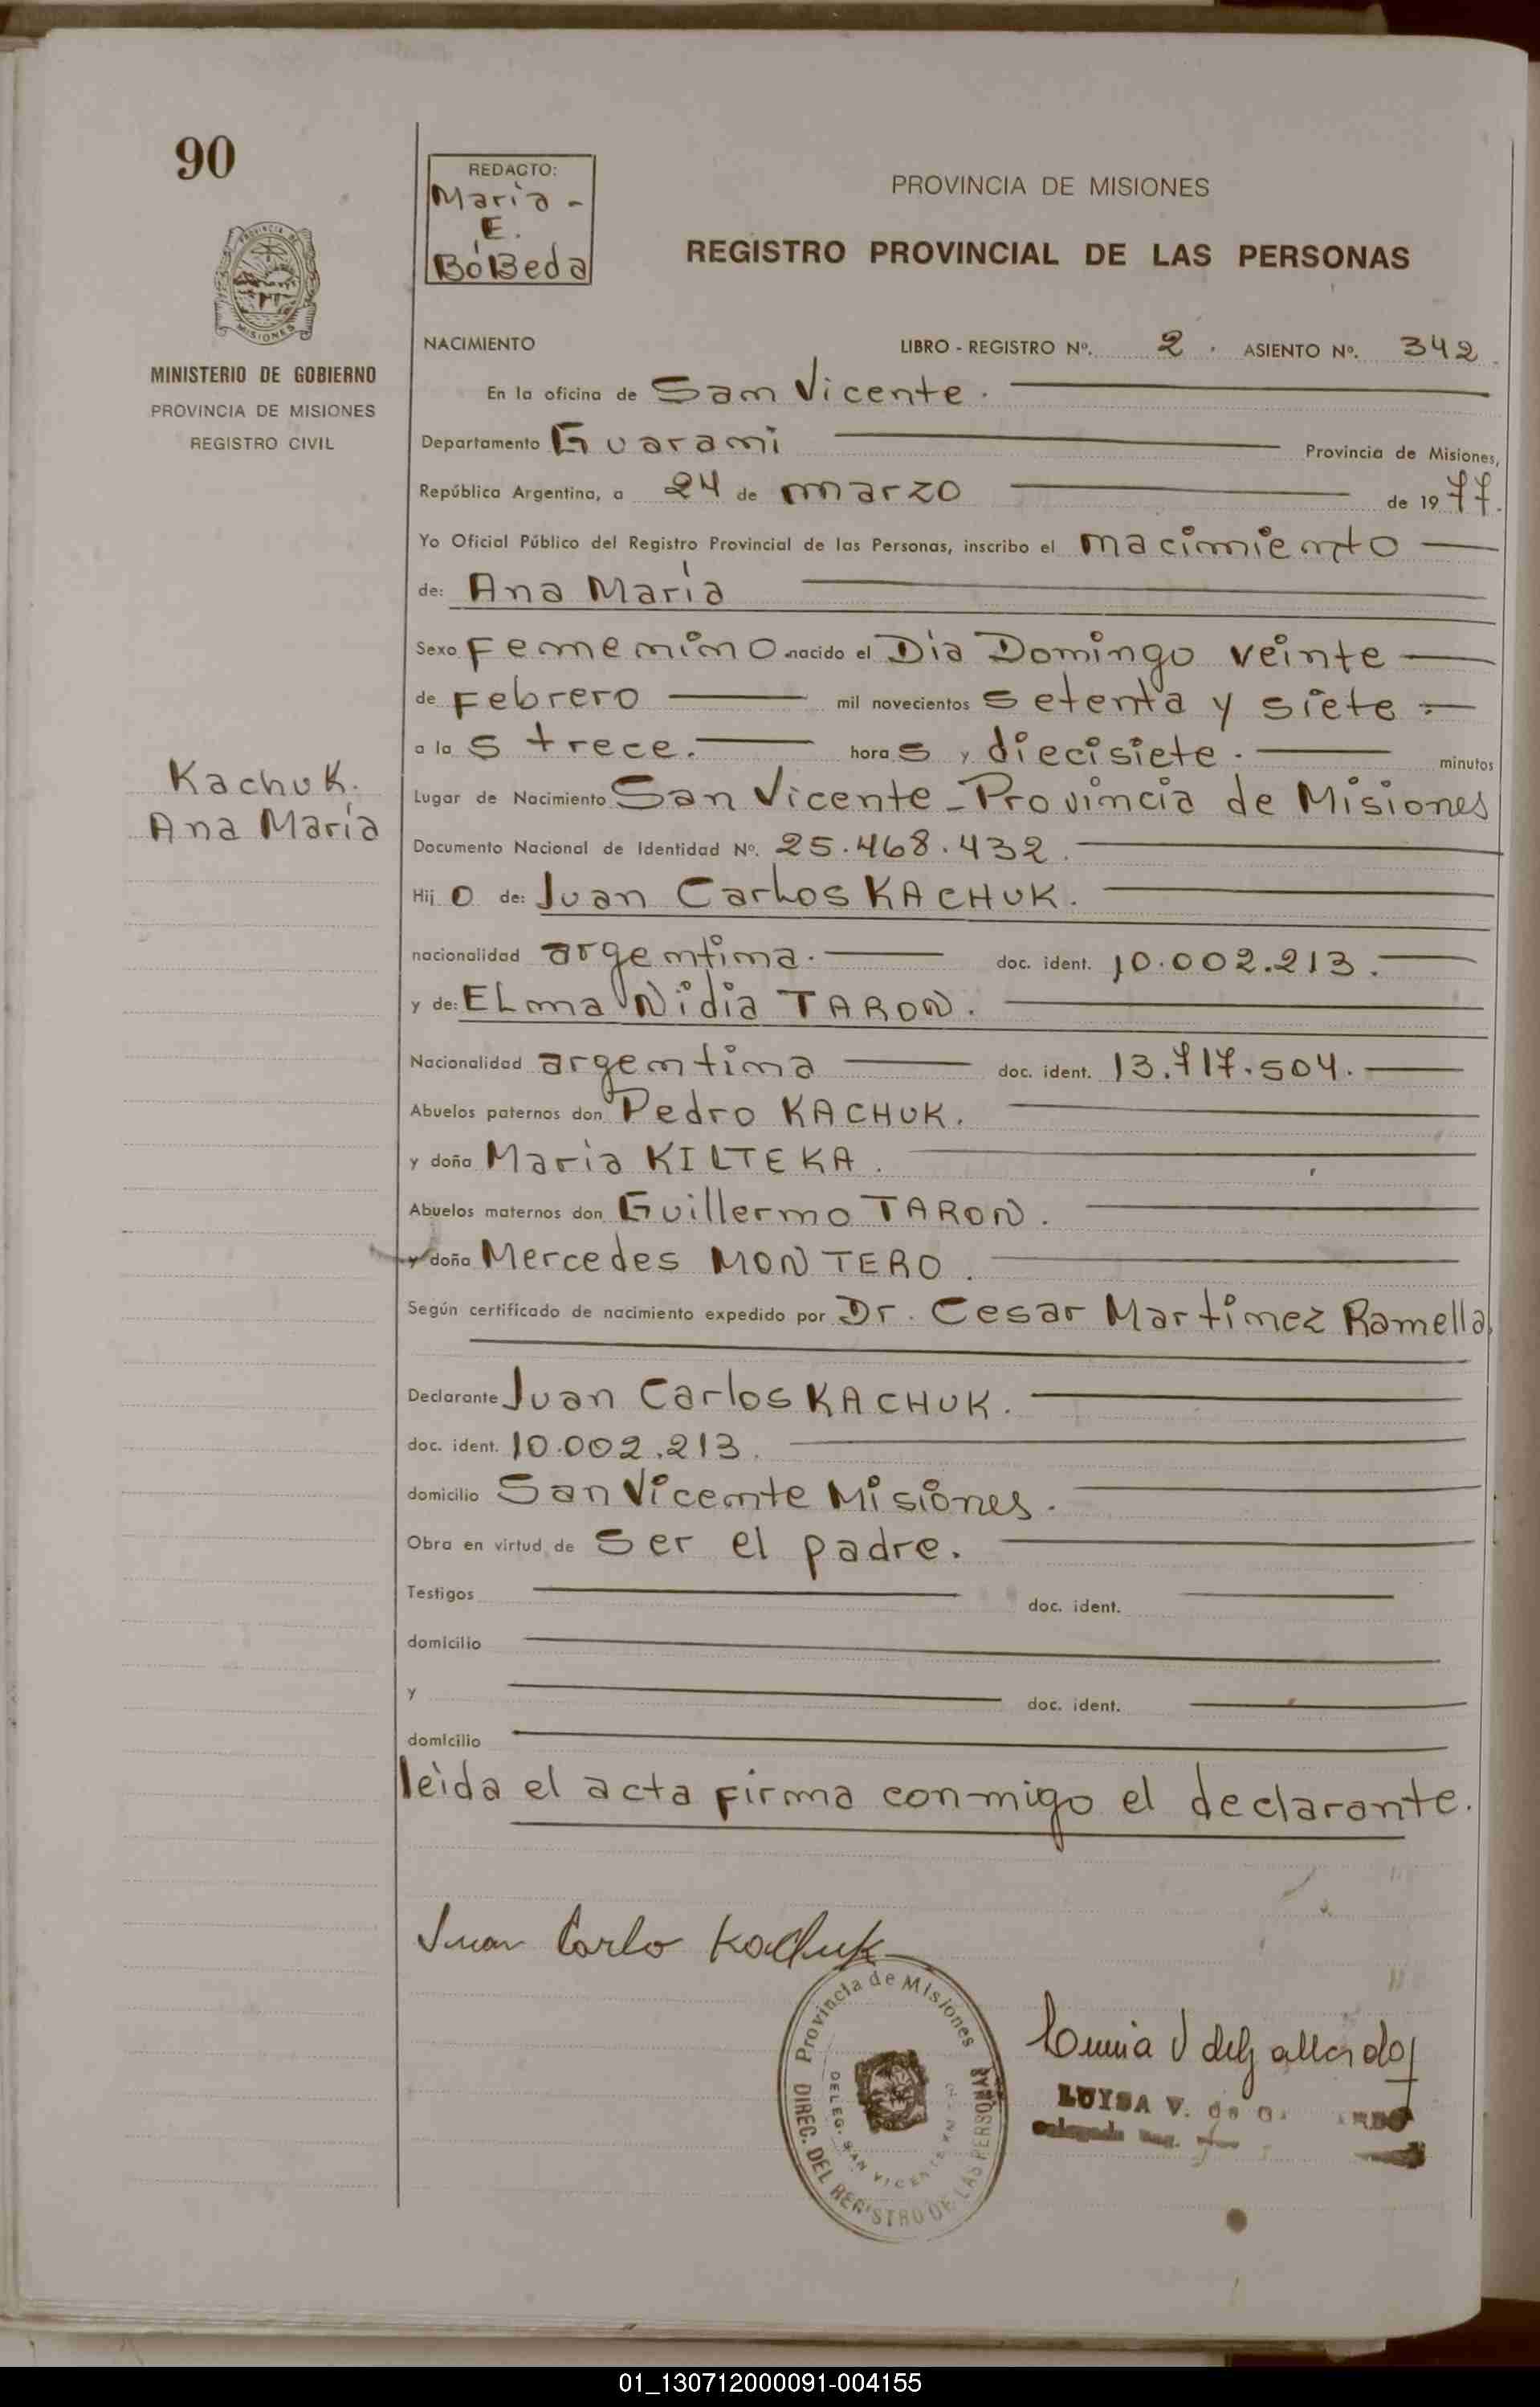 90
REDACTO:
Maria -
E.
BóBeda
PROVINCIA DE MISIONES
REGISTRO PROVINCIAL DE LAS PERSONAS
PROVINCIA DE
MISIONES
MINISTERIO DE GOBIERNO
PROVINCIA DE MISIONES
REGISTRO CIVIL
NACIMIENTO LIBRO - REGISTRO Nº. 2. ASIENTO Nº. 342.
En la oficina de San Vicente.
Departamento Guarani Provincia de Misiones,
República Argentina, a 24 de marzo de 1977.
Yo Oficial Público del Registro Provincial de las Personas, inscribo el nacimiento
de: Ana María
Sexo Femenino nacido el Dia Domingo veinte
de Febrero mil novecientos setenta y siete
a las trece. horas y diecisiete. minutos
Kachuk.
Ana María
Lugar de Nacimiento San Vicente - Provincia de Misiones
Documento Nacional de Identidad Nº. 25.468.432.
Hijo de: Juan Carlos KACHUK.
nacionalidad argentina. doc. ident. 10.002.213.
y de: ELma Nidia TARON.
Nacionalidad argentina doc. ident. 13.717.504.
Abuelos paternos don Pedro KACHUK.
y doña Maria KILTEKA.
Abuelos maternos don Guillermo TARON.
y doña Mercedes MONTERO.
Según certificado de nacimiento expedido por Dr. Cesar Martinez Ramella.
Declarante Juan Carlos KACHUK.
doc. ident. 10.002.213.
domicilio San Vicente Misiones.
Obra en virtud de ser el padre.
Testigos doc. ident.
domicilio
y doc. ident.
domicilio
leida el acta firma conmigo el declarante.
Juan Carlo Kachuk
Provincia de Misiones
DIREC. DEL REGISTRO DE LAS PERSONAS
DELEG. SAN VICENTE
LUISA V. de
01_130712000091-004155